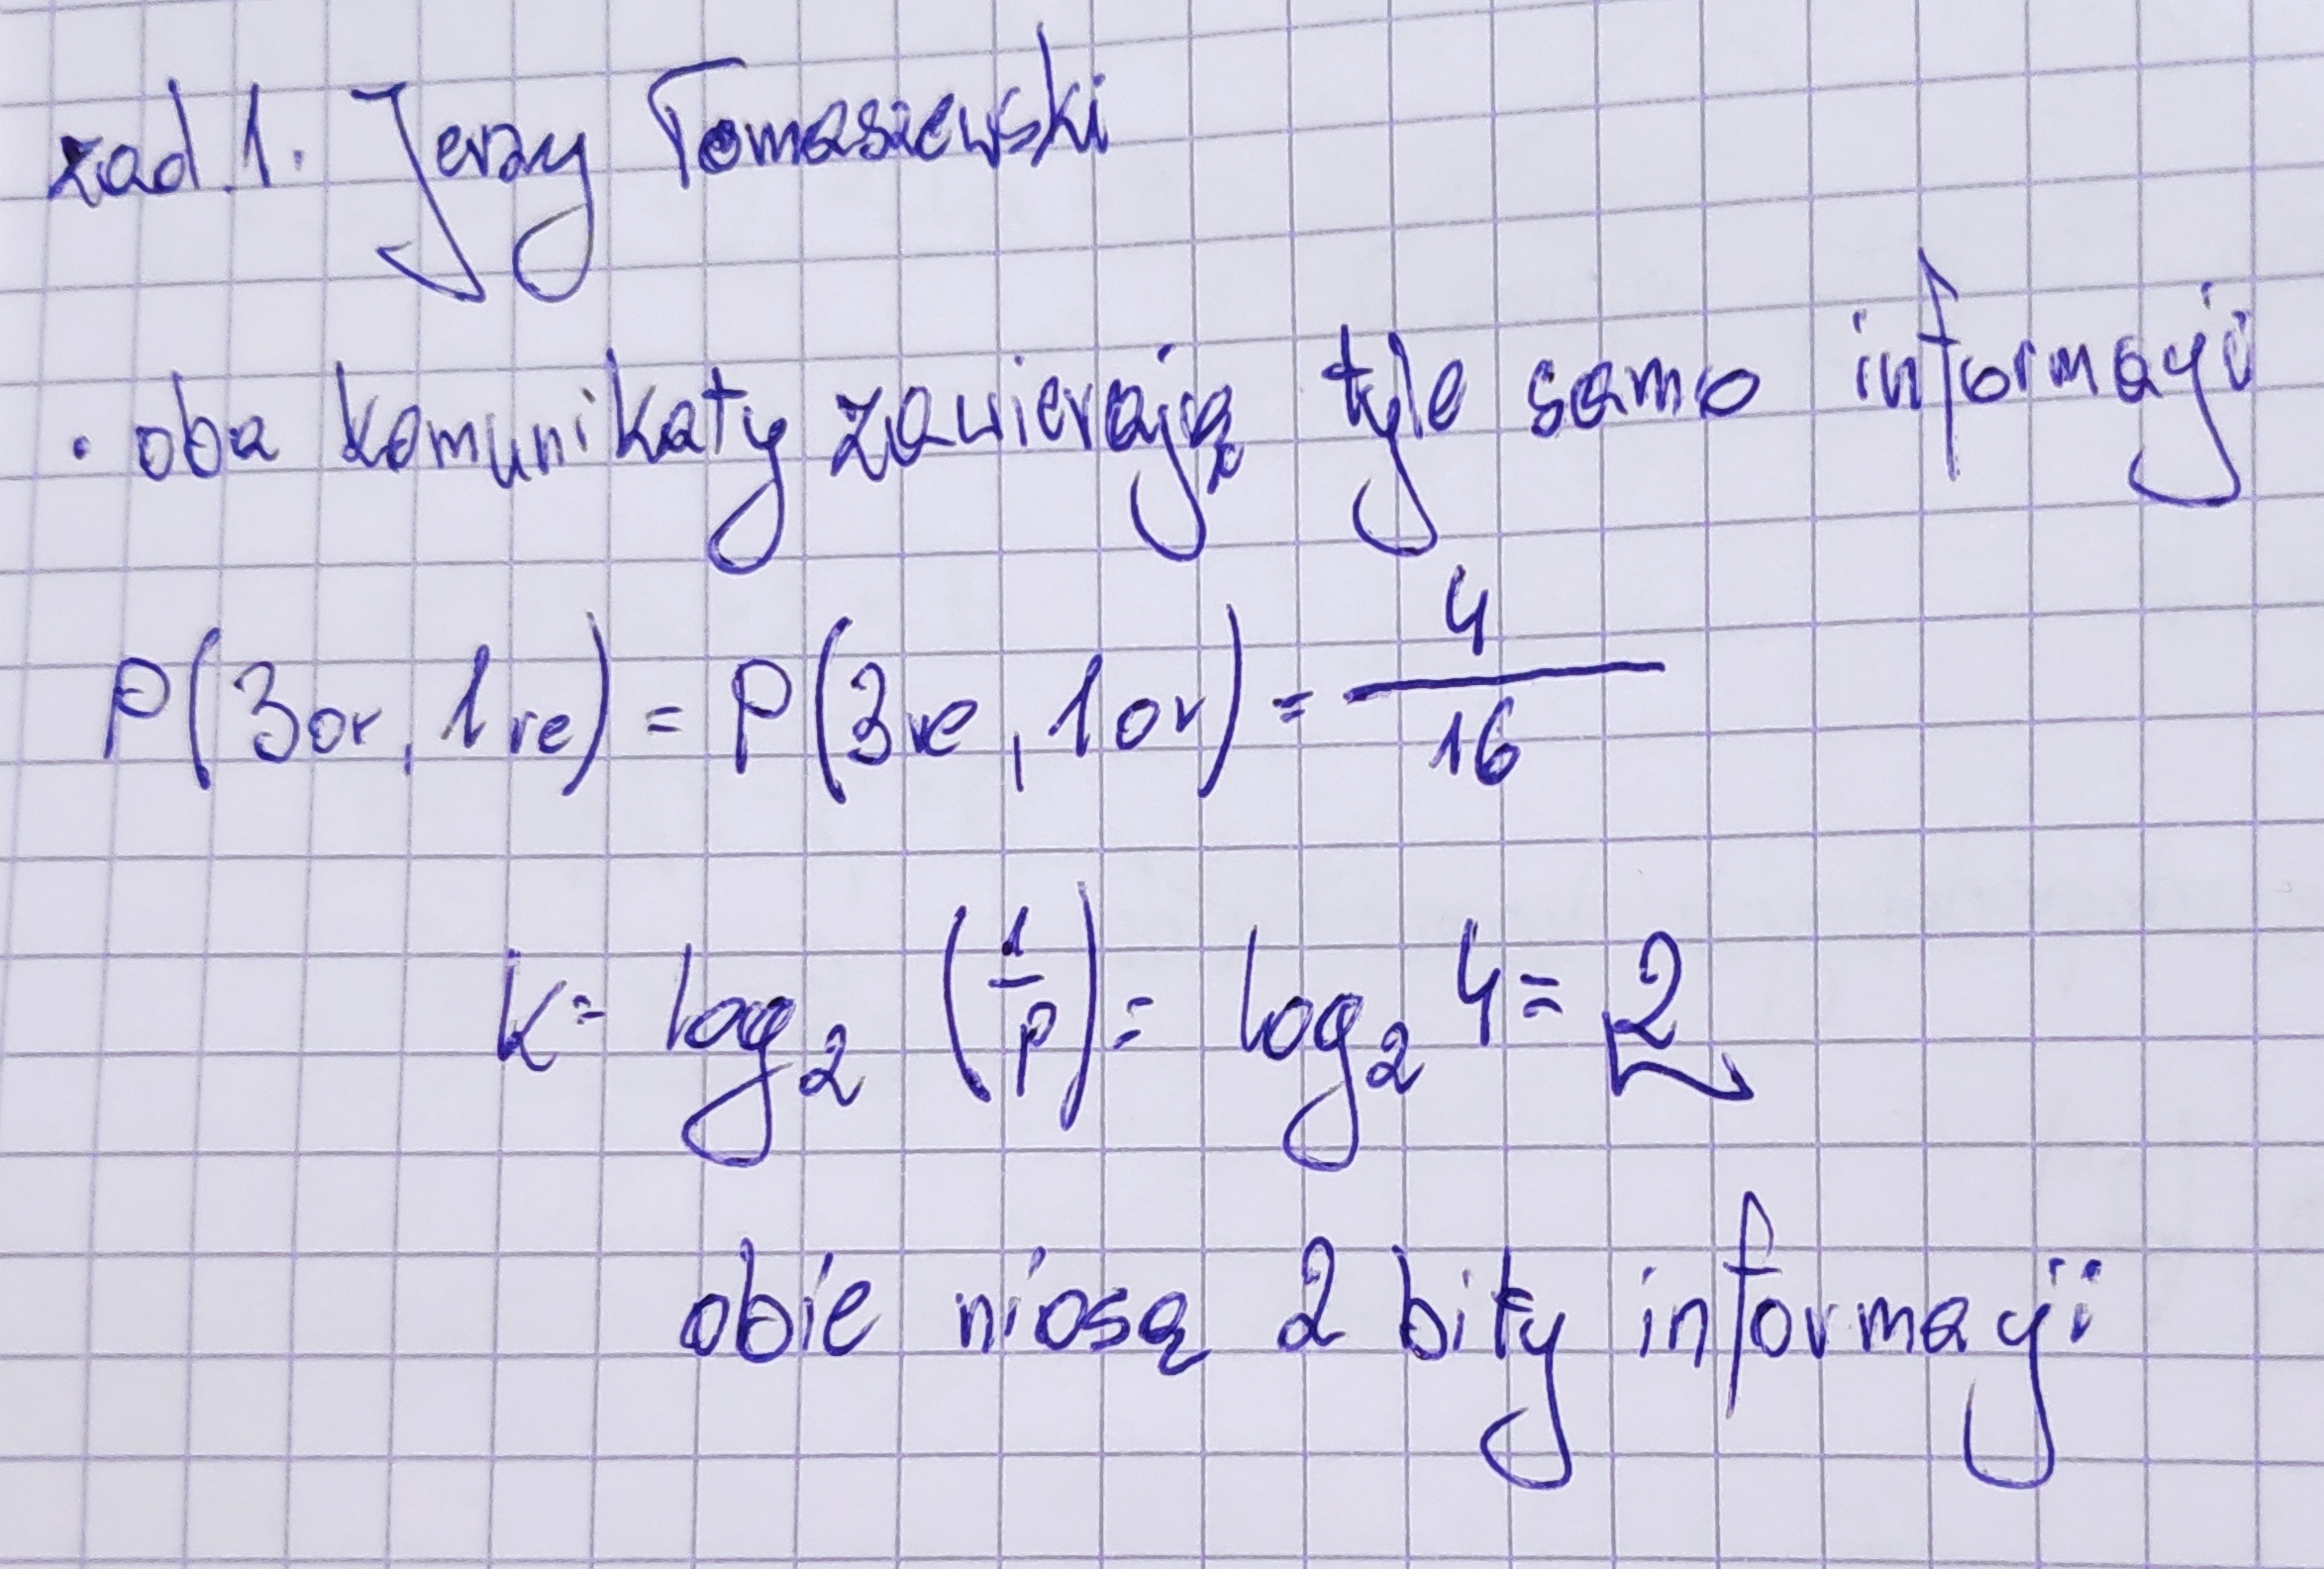 zad.1. Jerzy Tomaszewski
• oba komunikaty zawierają tyle samo informacji
P(3or, 1re) = P(3re, 1or) = 4/16
k = log₂ (1/p) = log₂ 4 = 2
obie niosą 2 bity informacji